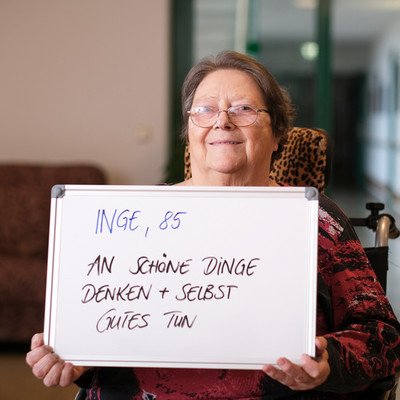 INGE, 85
AN SCHÖNE DINGE
DENKEN + SELBST
GUTES TUN